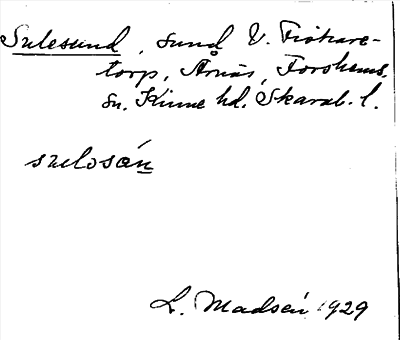 Sulesund, sund V. Fiskare-
torp, Årnäs, Forshems
sn. Kinne hd. Skarab. l.
sulosún
L. Madsén 1929